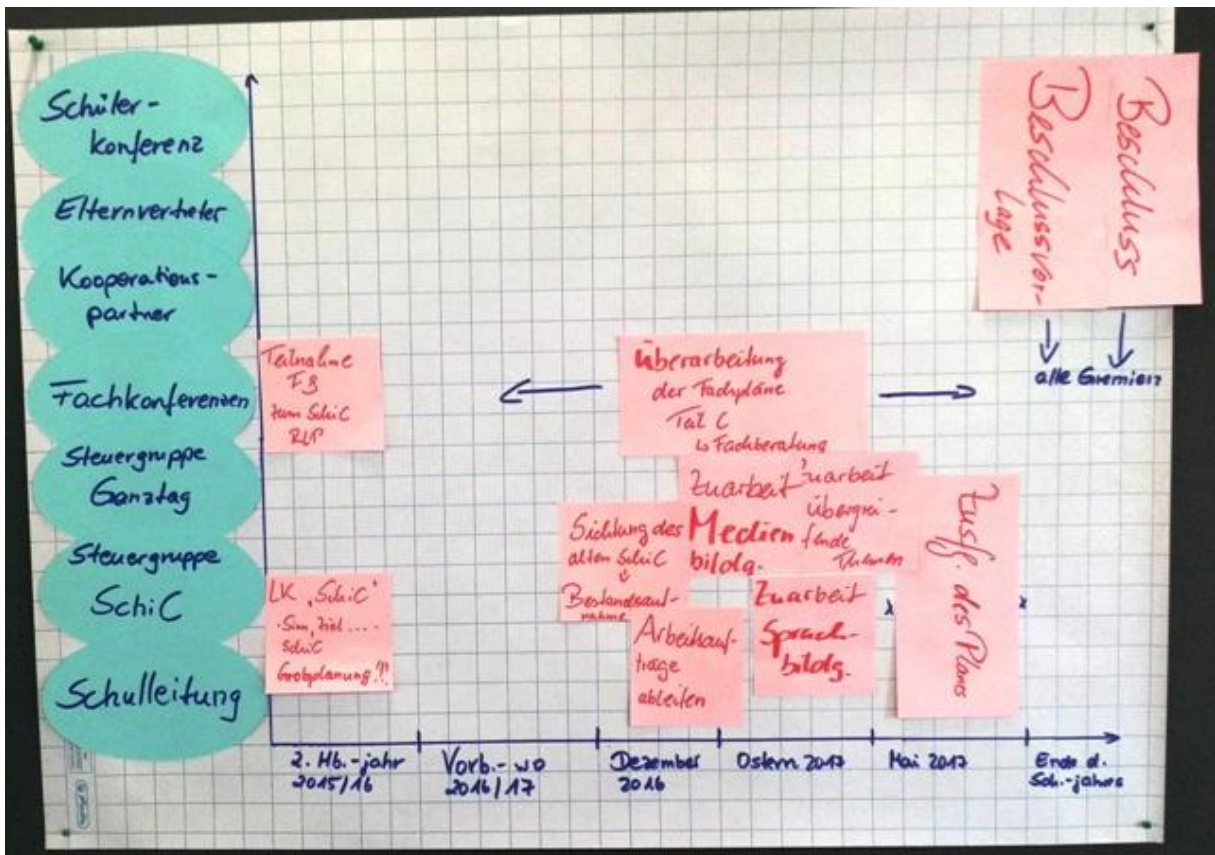 Schüler-
konferenz
Elternvertreter
Kooperations-
partner
Fachkonferenzen
Steuergruppe
Ganztag
Steuergruppe
SchiC
Schulleitung
Teilnahme
FB
zum SchiC
RLP
LK „SchiC“
·Sinn, Ziel....-
SchiC
Grobplanung!!!
Überarbeitung
der Fachpläne
Teil C
↳ Fachberatung
Zuarbeit
Medien
bildg.
Zuarbeit
übergrei-
fende
Themen
Sichtung des
alten SchiC
↓
Bestandsauf-
nahme
Arbeitsauf-
träge
ableiten
Zuarbeit
Sprach-
bildg.
Zusfg. des Planes
Beschlussvor-
lage
Beschluss
alle Gremien
2. Hb.-jahr
2015/16
Vorb.-wo
2016/17
Dezember
2016
Ostern 2017
Mai 2017
Ende d.
Sch.-jahres